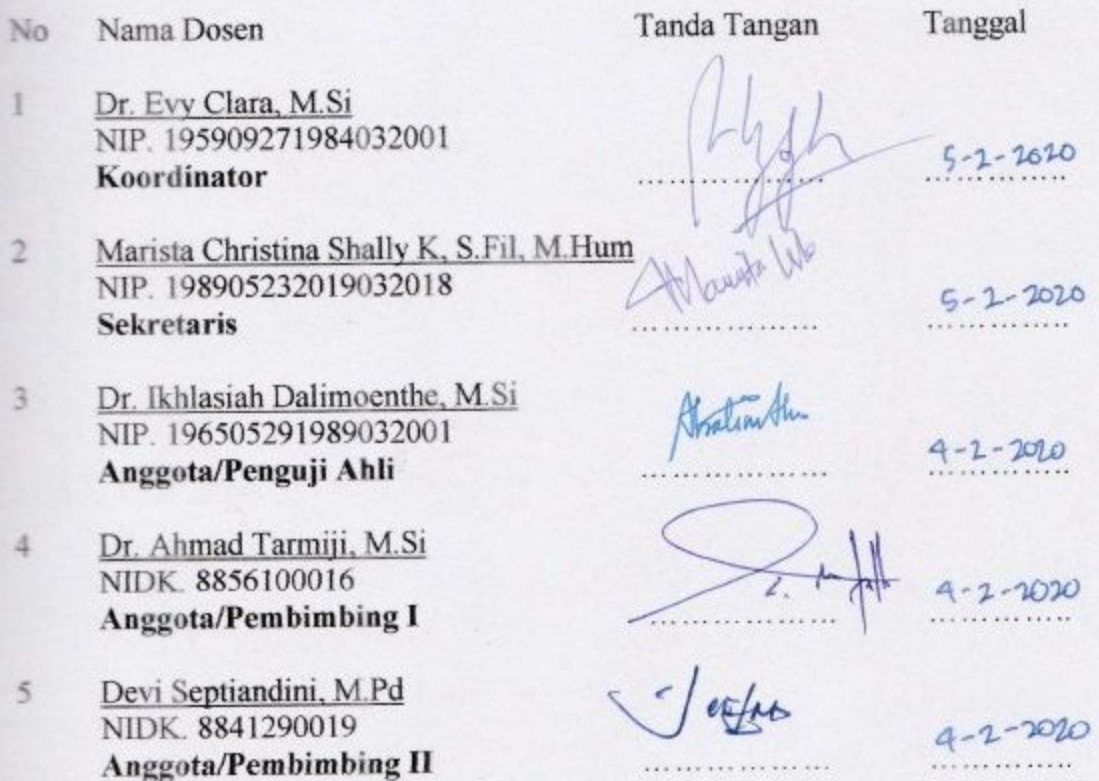 No Nama Dosen Tanda Tangan Tanggal
1 Dr. Evy Clara, M.Si
NIP. 195909271984032001
Koordinator .................. 5-2-2020
2 Marista Christina Shally K, S.Fil, M.Hum
NIP. 198905232019032018
Sekretaris .................. 5-2-2020
3 Dr. Ikhlasiah Dalimoenthe, M.Si
NIP. 196505291989032001
Anggota/Penguji Ahli .................. 4-2-2020
4 Dr. Ahmad Tarmiji, M.Si
NIDK. 8856100016
Anggota/Pembimbing I .................. 4-2-2020
5 Devi Septiandini, M.Pd
NIDK. 8841290019
Anggota/Pembimbing II .................. 4-2-2020